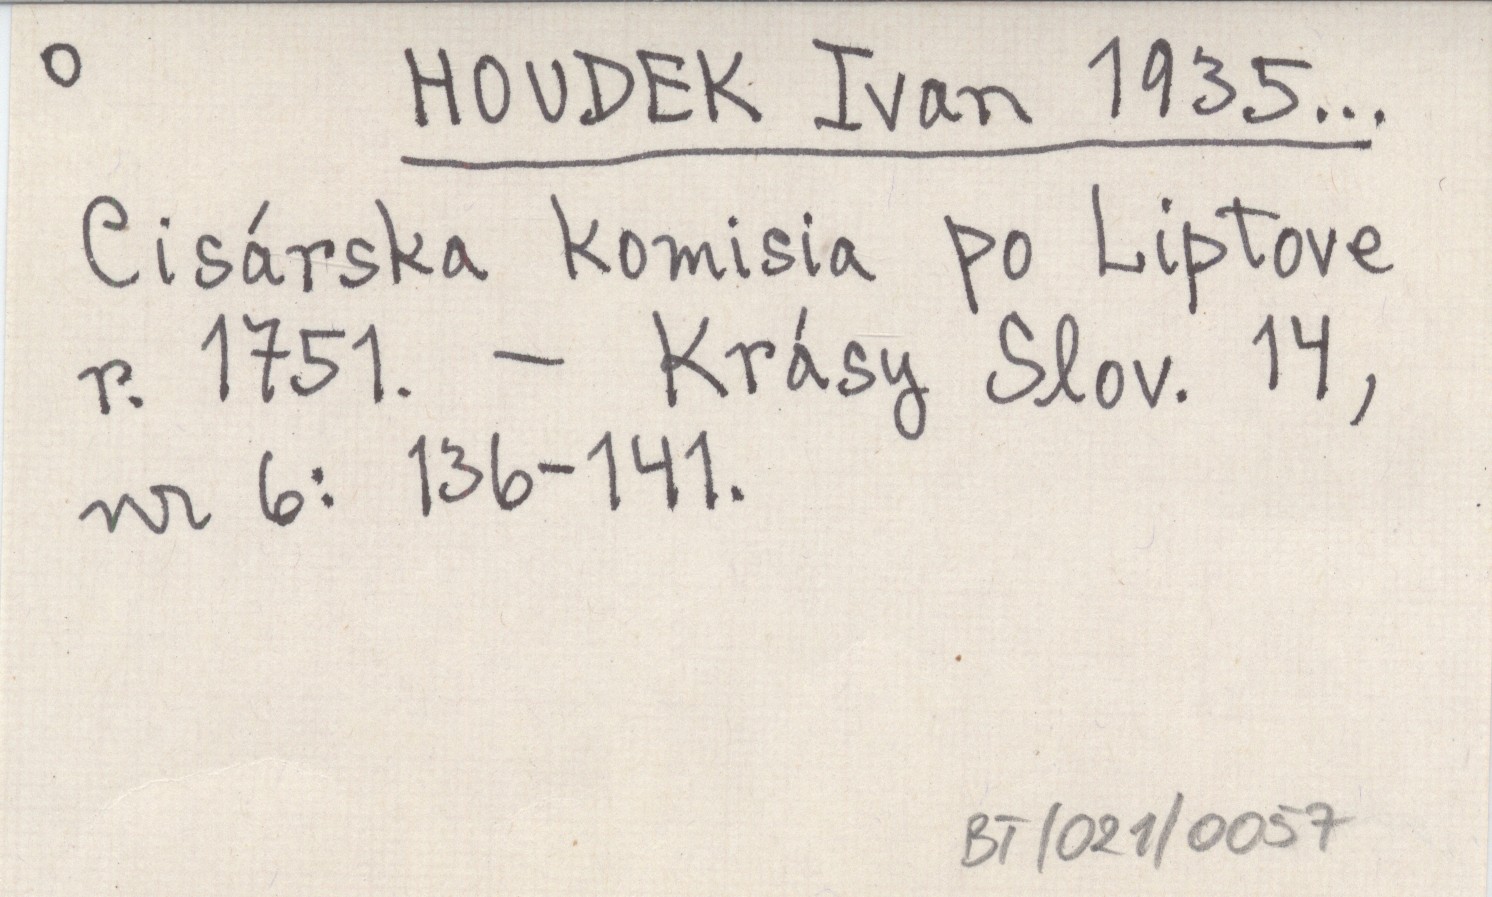 O HOUDEK Ivan 1935...
Cisárska komisia po Liptove
r. 1751. – Krásy Slov. 14,
nr 6: 136-141.
BT/021/0057